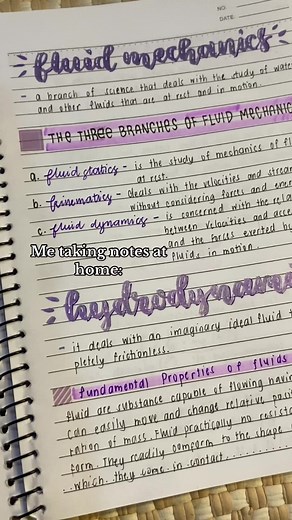 NO.
DATE:
fluid mechanics
- a branch of science that deals with the study of wate
and other fluids that are at rest and in motion.
THE THREE BRANCHES OF FLUID MECHANIC
a. fluid statics - is the study of mechanics of fl
at rest.
b. kinematics - deals with the velocities and strea
without considering forces and ener
c. fluid dynamics - is concerned with the rela
between velocities and acce
and the forces exerted by
fluids in motion.
Me taking notes at
home:
hydrodynami
- it deals with an imaginary ideal fluid t
pletely frictionless.
Fundamental Properties of fluids
Fluid are substance capable of flowing havin
can easily move and change relative posit
ration of mass. Fluid practically no resist
form. They readily comform to the shape
which they come in contact.